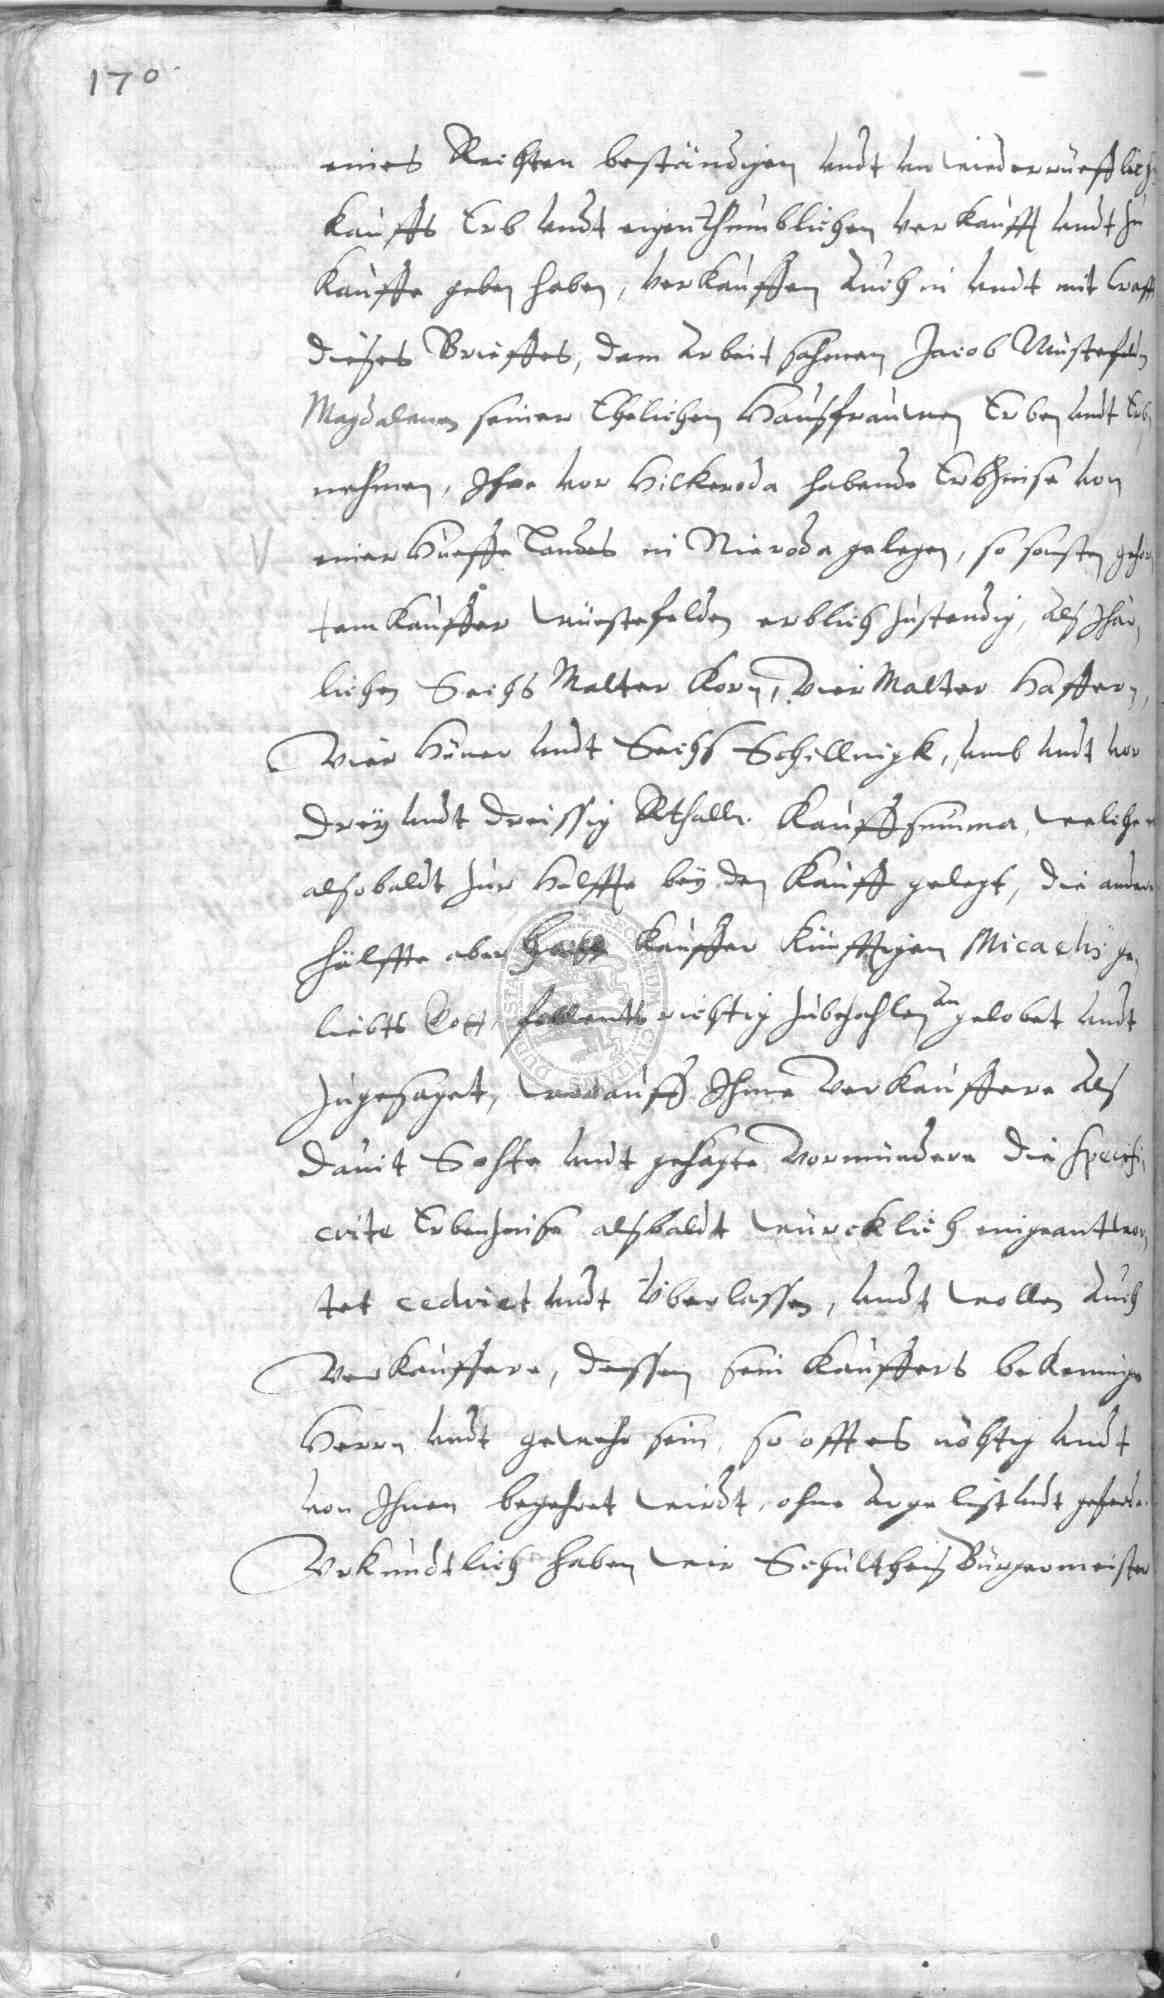 170
eines Rechten beständigen undt un wiederrüefflich
Kauffs Erb undt eigenthumblichen verkaufft undt zu
Kauffe geben haben, verkauffen auch in undt mit Crafft
dieses Brieffes, dem Arbeitsahmen Jacob Wüstefelden
Magdalenen seiner Ehelichen Haußfrauwen Erben undt Erb
nehmen, Ihre vor Hilkeroda habende Erbzinse von
einer Hueffe Landes in Nieroda gelegen, so sonsten
tem Kauffer Wüestefelden erblich zustendig, alß Jhär,
lichen Sechs Malter Korn, Vier Malter Haffern,
Vier Hüner undt Sechß Schillingk, umb undt vor
Dreÿ undt dreissig Rthall. Kauffsumma, welche
alsobaldt zur Helffte beÿ den Kauff gelegt, die andere
hälffte aber Kauffer künfftigen Michaelis ge,
liebts Gott, follents richtig zubezahlen an gelobet undt
zugesaget, worauff Ihme Verkauffere alß
Davit Sohte undt gesagte Vormündere die specifi,
cirte Erbenzinse alßbaldt würcklich eingeantwor
tet cediret undt überlassen, undt wollen auch
Verkauffere, dessen sein Kauffers bekennige
Herrn undt gewehr sein, so offt es nöhtig undt
von Ihnen begehret wirdt, ohne arge list undt geferde.
Vrkundtlich haben wir Schultheiß Bürgermeister